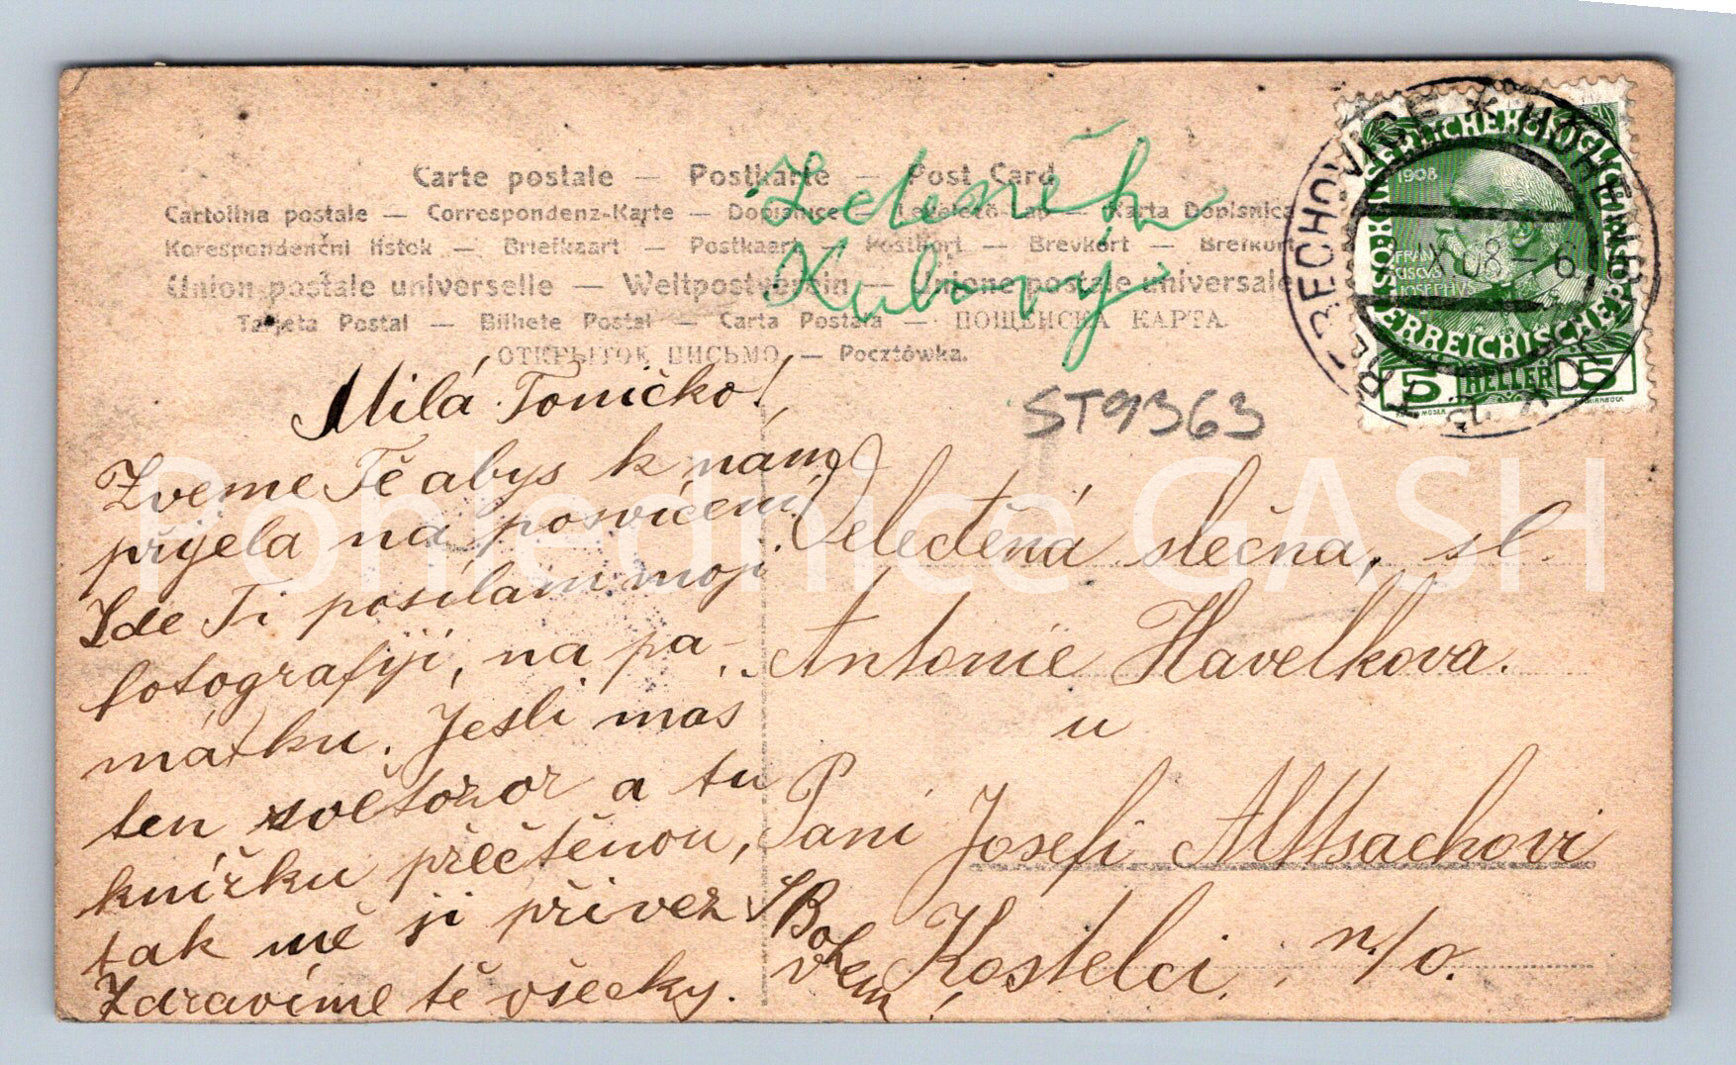 Carte postale — Postkarte — Post Card
Cartolina postale — Correspondenz-Karte — Dopisnice — Levelező-Lap — Karta Dopisnica
Korespondenční lístek — Briefkaart — Postkaart — Postkort — Brevkort — Brefkort
Union postale universelle — Weltpostverein — Unione postale universale
Tarjeta Postal — Bilhete Postal — Carta Postala — ПОЩЕНСКА КАРТА
ОТКРЫТОК ПИСЬМО — Pocztówka.
Zdeněk
Kubový
ST9363
1908
FRAN
CISCVS
JOSEPHVS
5 HELLER 5
BECHOVICE
IX 08 - 6
Milá Toničko!
Zveme Tě abys k nám
přijela na posvícení.
Zde Ti posílám moji
fotografiji, na pa-
mátku. Jesli mas
ten světozor a tu
knížku přečtěnou,
tak mě ji přivez
Zdravíme tě všecky.
S Bohem!
Velectěná slečna, sl.
Antonie Havelkova.
u
Pani Josefi Alltsachovi
v Kostelci n./o.
Pohlednice GASH